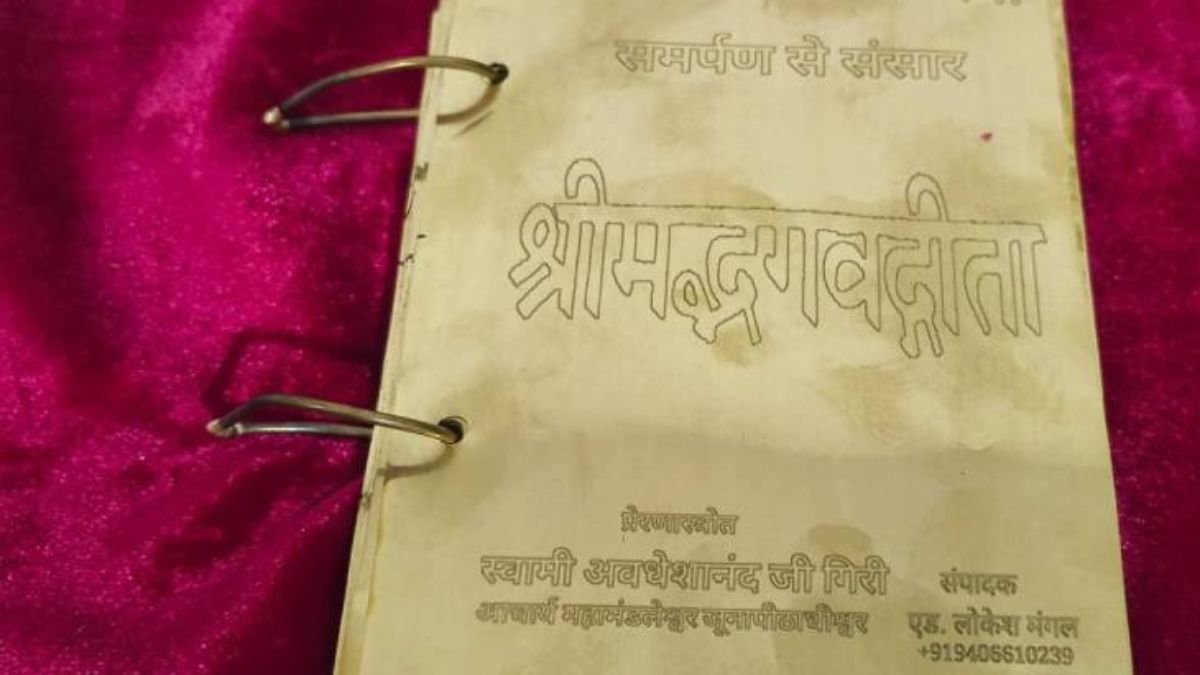 समर्पण से संसार
श्रीमद्भगवद्गीता
प्रेरणास्त्रोत
स्वामी अवधेशानंद जी गिरी
आचार्य महामंडलेश्वर जूनापीठाधीश्वर
संपादक
एड. लोकेश मंगल
+919406610239